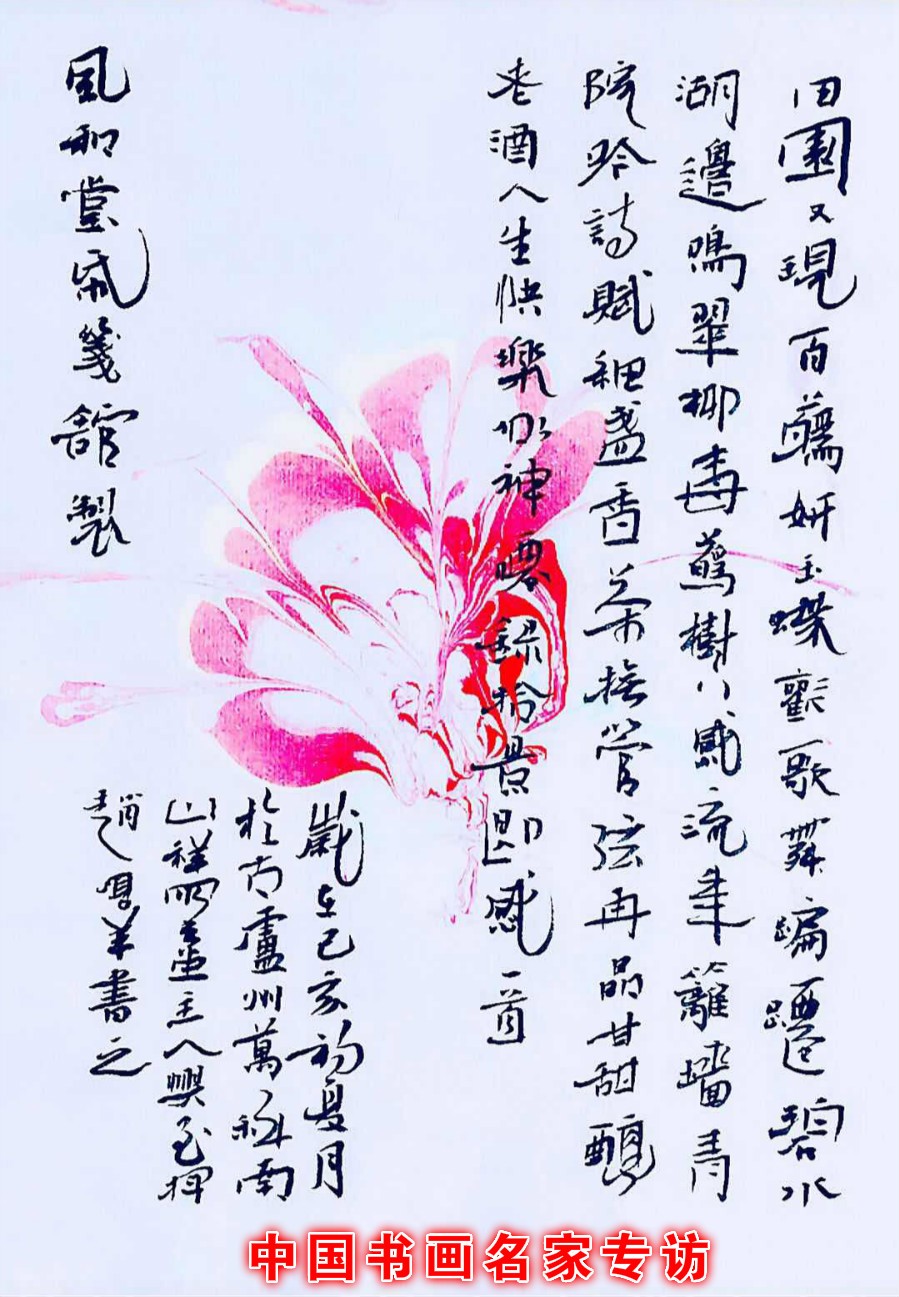 田園又現百蘤妍玉蝶歡歌舞蹁躚碧水
湖邊鳴翠柳毒鶯樹丫感流年籬墻青
院吟詩賦細盞香茶撫管弦再品甘甜釀
老酒人生快樂似神 錄拾景即感一首
歲在己亥初夏月
於古廬州萬科南
山祥 主人興至揮
趙 羊書之
風和堂紙箋館製
中国书画名家专访